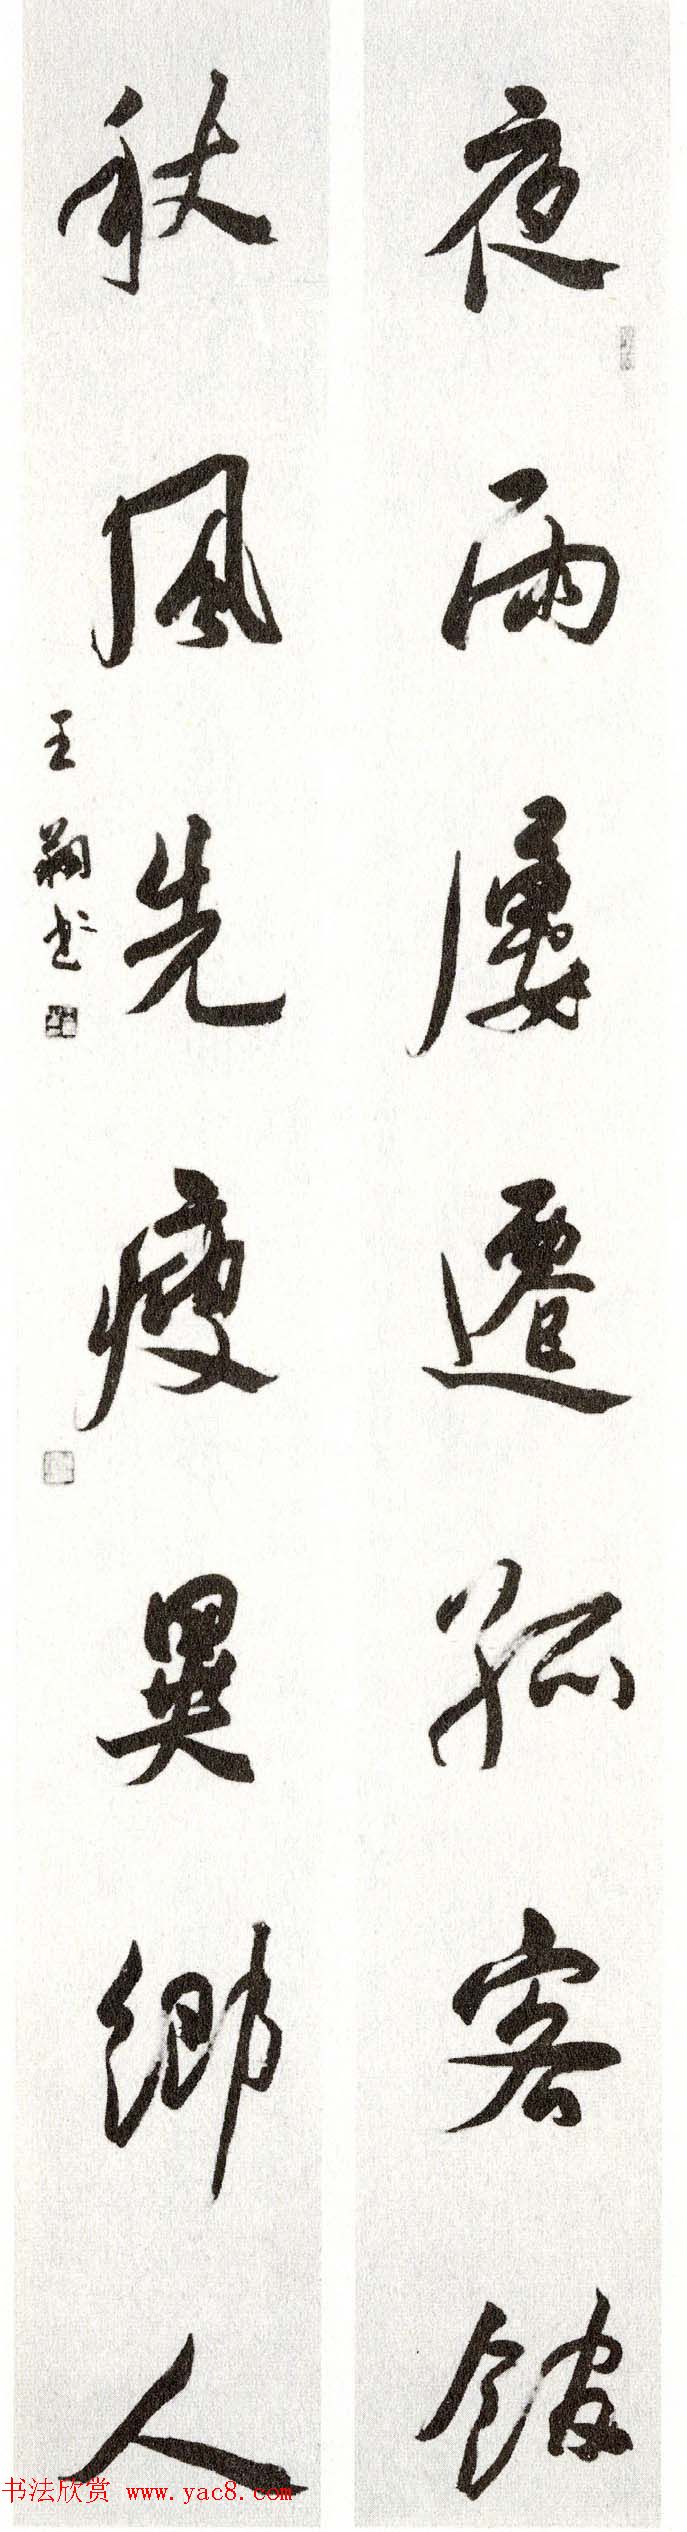 夜雨屢遷孤客館
秋風先瘦異鄉人
王翰书
书法欣赏 www.yac8.com